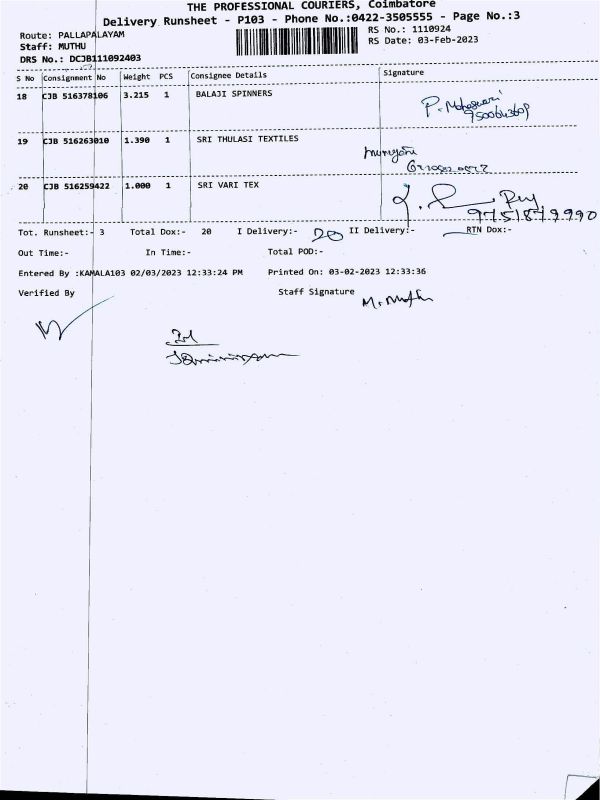 THE PROFESSIONAL COURIERS, Coimbatore
Delivery Runsheet - P103 - Phone No.:0422-3505555 - Page No.:3
Route: PALLAPALAYAM
RS No.: 1110924
Staff: MUTHU
RS Date: 03-Feb-2023
DRS No.: DCJB111092403
S No Consignment No Weight PCS Consignee Details Signature
18 CJB 516378106 3.215 1 BALAJI SPINNERS
P. Maheswari
19 CJB 516263010 1.390 1 SRI THULASI TEXTILES
20 CJB 516259422 1.000 1 SRI VARI TEX
9751879990
Tot. Runsheet:- 3 Total Dox:- 20 I Delivery:- 20 II Delivery:- RTN Dox:-
Out Time:- In Time:- Total POD:-
Entered By :KAMALA103 02/03/2023 12:33:24 PM Printed On: 03-02-2023 12:33:36
Verified By Staff Signature M. Muthu